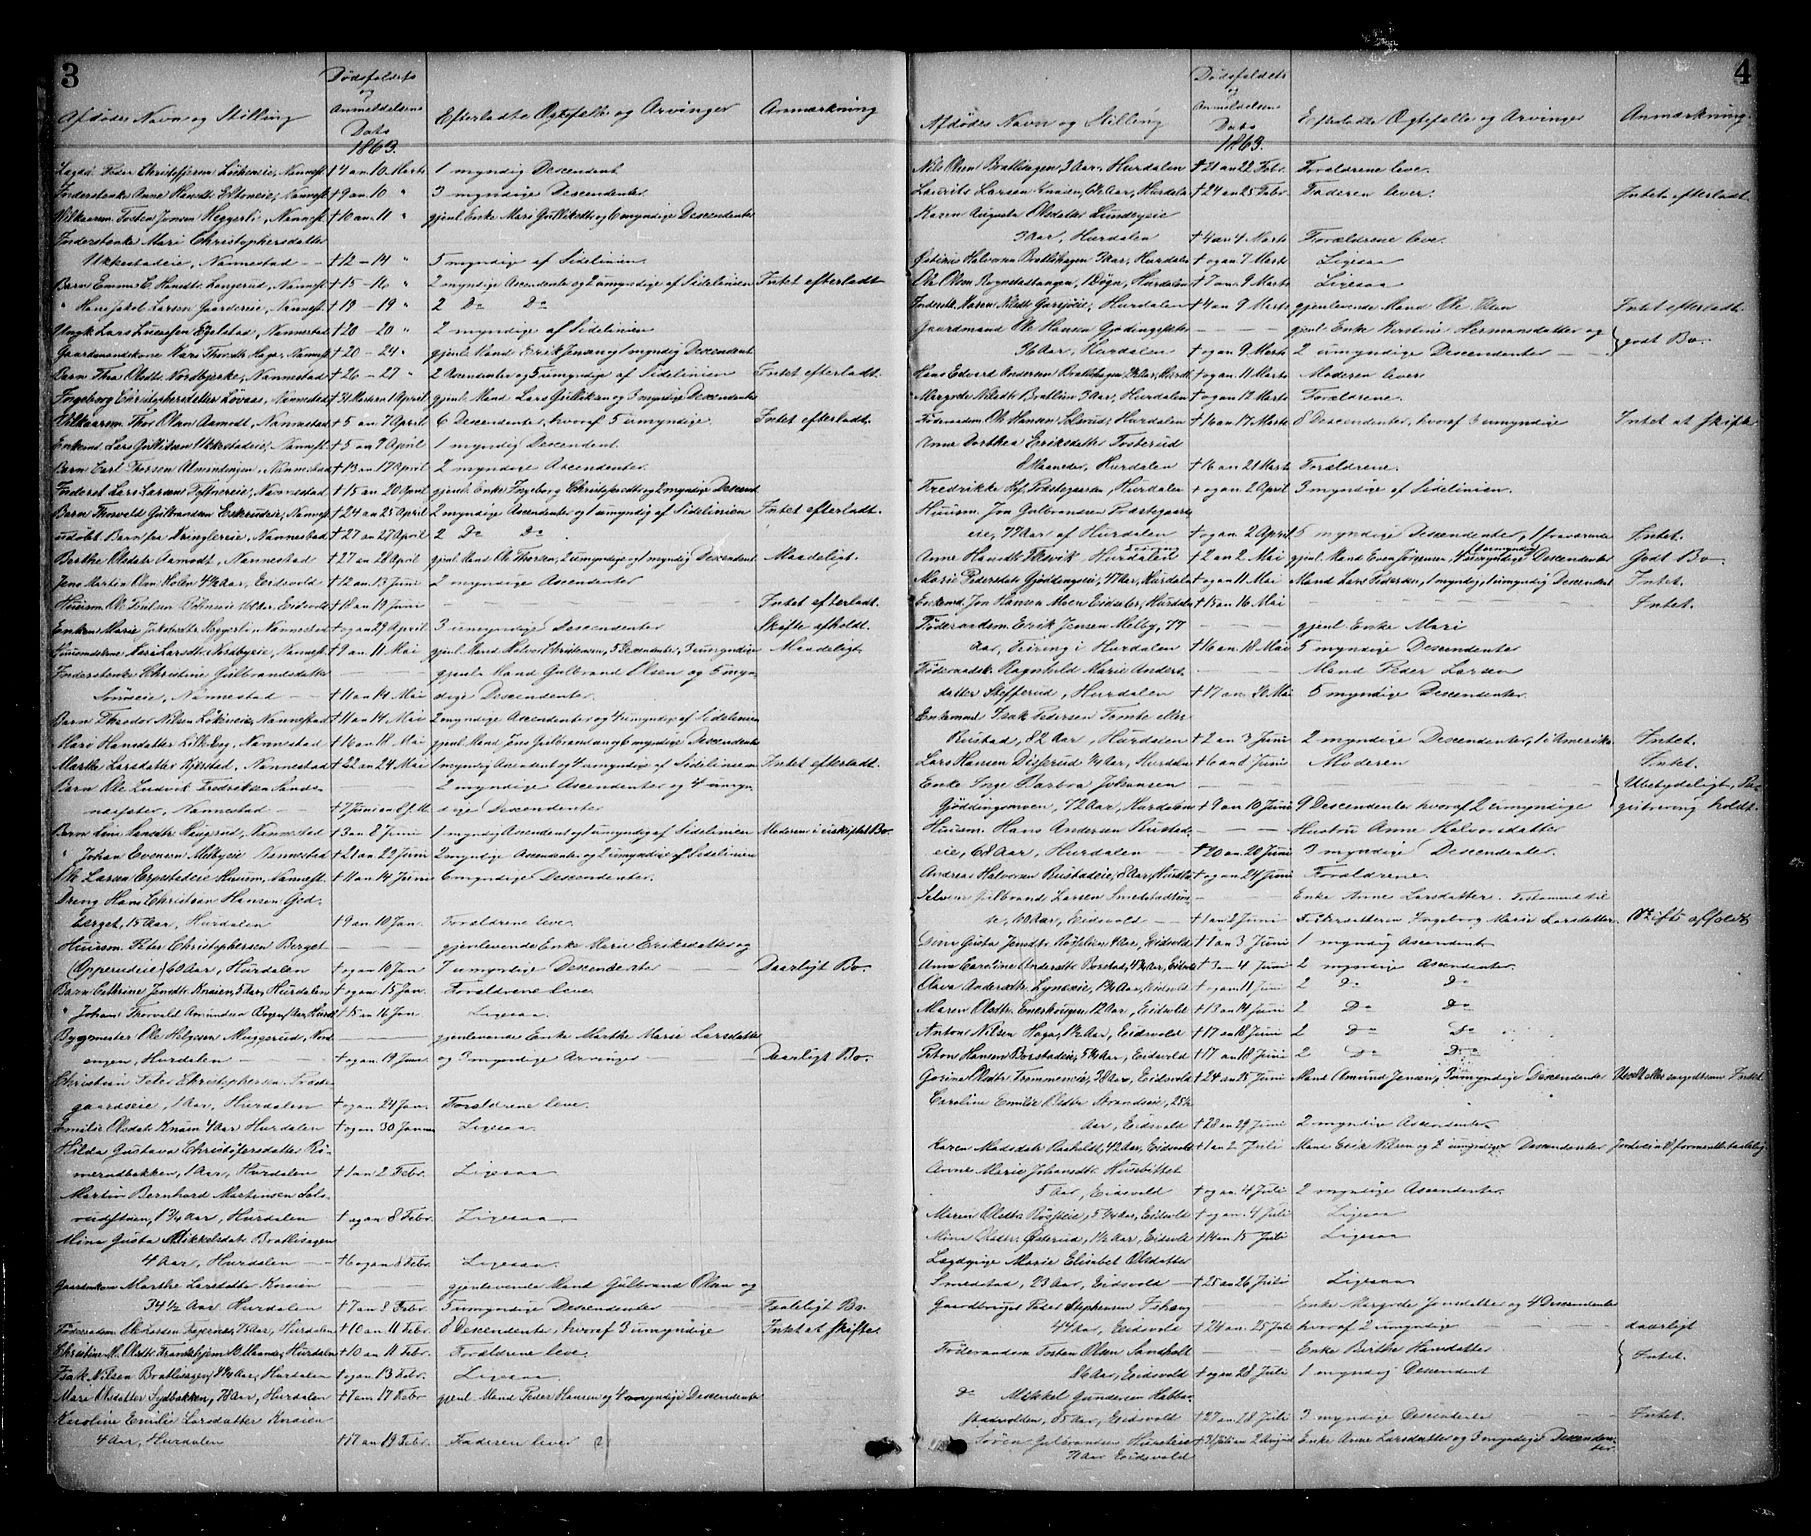 3
Afdødes Navn og Stilling
Dødsfaldets og Anmeldelsens Dato
Efterladte Ægtefælle og Arvinger
Anmærkning
1863.
Peder Christophersen Løkeneie, Nannest. † 4 an 10 Marts 1 myndig Descendent
Inderstenke Anne Hansdtr. Nannest. † 9 an 10 " 3 myndige Descendenter
Tosten Jonsen Heggerli, Nannest. † 10 an 11 " gjenl. Enke Mari Gulliksdtr. og 6 myndige Descendenter
Inderstenke Mari Christophersdatter
Ukkestadeie, Nannestad † 12 – 14 " 5 myndige af Sidelinien
Barn Emma C. Hansdtr. Nannest. † 15 – 16 " 2 myndige Ascendenter og 2 umyndige af Sidelinien Intet efterladt
" Hans Jakob Larsen Gaardereie, Nannest. † 19 – 19 " 2 Do Do
Ungk. Lars Larsen Egelstad, Nannestad † 20 – 20 " 2 myndige af Sidelinien
Gaardmandskone Mari Thorsdtr. Haga, Nannest. † 20 – 24 " gjenl. Mand Erik Jensen og 1 myndig Descendent
Barn Thea Olsdtr. Nordbjerke, Nannestad † 26 – 27 " 2 Ascendenter og 5 umyndige af Sidelinien Intet efterladt.
Ingeborg Christophersdatter Lovaas, Nannestad † 31 Marts an 1 April gjenl. Mand Lars Gulliksen og 3 myndige Descendenter
Vilkaarsm. Thor Olsen Aamodt, Nannestad † 5 an 7 April 6 Descendenter, hvoraf 5 umyndige. Intet efterladt.
Enkemd. Lars Gulliksen Ukkestadeie, Nannest. † 5 an 9 April 1 myndig Descendent.
Barn Carl Thorsen Almindingen, Nannestad † 13 an 17 April 2 myndige Ascendenter.
Inderst Lars Larsen Nannestad † 15 an 20 April gjenl. Enke Ingeborg Christophersdtr. og 2 myndige Descend.
Barn Thorvald Gulbrandsen Eskerudeie, Nannest. † 24 an 25 April 2 myndige Ascendenter og 1 umyndig af Sidelinien Intet efterladt.
udøbt Barn fra Ringlereie, Nannestad † 27 an 27 April 2 Do Do
Berthe Olsdatr. Aamodt, Nannestad † 27 an 28 April gjenl. Mand Ole Thorsen, 2 umyndige og 1 myndig Descendent Maadeligt.
Jens Martin Olsen Holen 4½ Aar, Eidsvold † 12 an 13 Juni 2 myndige Ascendenter
Huusm. Ole Paulsen 60 Aar, Eidsvold † 18 an 19 Juni Intet efterladt.
Enken Marie Jakobsdtr. Heggerli, Nannestad † og an 29 April 3 umyndige Descendenter Skifte afholdt.
Mari Larsdtr. Nordbyeie, Nannest. † 9 an 11 Mai gjenl. Mand Halvor Christensen, 5 Descendenter, 3 umyndige Maadeligt
Inderstenke Christine Gulbrandsdatter gjenl. Mand Gulbrand Olsen og 5 myn-
Nannestad † 11 an 14 Mai dige Descendenter.
Barn Theodor Nilsen Løkeneie, Nannestad † 11 an 14 Mai 2 myndige Ascendenter og 4 umyndige af Sidelinien
Mari Hansdatter Lille Eeg, Nannestad † 16 an 18 Mai gjenl. Mand Jens Gulbrandsen og 6 myndige Descendenter
Marthe Larsdatter Kjærstad, Nannestad † 22 an 24 Mai 1 myndig Ascendent og 4 umyndige af Sidelinien Intet efterladt.
Barn Ole Ludvik Fredriksen 2 myndige Ascendenter og 4 umyn-
Nannestad † 7 Juni dige Descendenter
Nannestad † 3 an 8 Juni 1 myndig Ascendent og 1 umyndig af Sidelinien Moderen i uskiftet Bo.
" Johan Evensen Melbyeie Nannestad † 21 an 22 Juni 2 myndige Ascendenter og 2 umyndige af Sidelinien
Ole Larsen Huusm. Nannest. † 11 an 14 Juni 6 myndige Descendenter.
Dreng Hans Christian Hansen God-
berget, 15 Aar, Hurdalen † 9 an 10 Jan. Forældrene leve.
Huusm. Peter Christophersen Berget gjenlevende Enke Marie Eriksdatter og
(Opperudeie) 60 Aar, Hurdalen † og an 10 Jan 7 umyndige Descendenter Daarligt Bo.
Barn Cathrine Jensdtr. Knaien, 5 Aar, Hurdalen † og an 15 Jan. Forældrene leve.
" Johans Thorvald Amundsen † 15 an 16 Jan. Ligesaa.
Bygmester Ole Helgesen Muggerud, gjenlevende Enke Marthe Marie Larsdatter
Hurdalen † og an 19 Jan. og 3 myndige Arvinger Daarligt Bo.
Christian Peter Christophersen
gaardseie, 1 Aar, Hurdalen † og an 24 Jan. Forældrene leve.
Emilie Olsdatr. Knaien 4 Aar Hurdalen † og an 30 Januar Ligesaa.
Hilda Gustava Christofersdatter Rø-
merudbakken, 1 Aar, Hurdalen † 1 an 2 Febr. Ligesaa
Martin Bernhard Martinsen Sols-
rudstuen, 1¾ Aar, Hurdalen † og an 8 Febr. Ligesaa.
Mina Gusta Mikkelsdatr. Brattlisagen
4 Aar, Hurdalen † 6 og an 8 Febr. Ligesaa.
Gaardmkone Marthe Larsdatter Knaien gjenlevende Mand Gulbrand Olsen og
34½ Aar Hurdalen † 7 an 8 Febr. 5 umyndige Descendenter Taaleligt Bo.
Føderaadsm. Ole Larsen 73 Aar, Hurdalen † 10 an 11 Febr. 8 Descendenter, hvoraf 3 umyndige Intet at skifte.
Christine M. Olsdtr. 8 Maaneder, Hurdalen † 10 an 11 Febr. Forældrene leve.
Isak Nilsen Brattlisagen, 4½ Aar, Hurdalen † og an 13 Febr. Ligesaa.
Mari Olsdatter Sydbakken, 78 Aar, Hurdalen † 7 an 17 Febr. gjenl. Mand Peder Hansen og 4 myndige Descendenter
Karoline Emilie Larsdatter Knaien
4 Aar, Hurdalen † 17 an 19 Febr. Faderen lever
4
Afdødes Navn og Stilling
Dødsfaldets og Anmeldelsens Dato
Efterladte Ægtefælle og Arvinger
Anmærkning.
1863.
Nils Olsen Brattlisagen 3 Aar, Hurdalen † 21 an 22 Febr. Forældrene leve.
Lauritz Larsen Knaien, 6½ Aar, Hurdalen † 24 an 25 Febr. Faderen lever. Intet efterladt.
Karen Augusta Olsdatter Lundbyeie
3 Aar, Hurdalen † 4 an 4 Marts Forældrene leve.
Halvorsen Brattlisagen Aar, Hurdalen † og an 7 Marts Ligesaa
Ole Olsen Rognstadtangen, 1 Døgn, Hurdalen † 7 an 9 Marts Ligesaa
Maren Nilsdtr. Garsjøeie, Hurdalen † 4 an 9 Marts gjenlevende Mand Ole Olsen Intet efterladt.
Gaardmand Ole Hansen gjenl. Enke Kirstine Hermansdatter og
36 Aar, Hurdalen † og an 9 Marts 2 umyndige Descendenter godt Bo.
Hans Edvard Andersen Brattlisagen, 2½ Aar, Hurdal. † og an 11 Marts Moderen lever
Margrethe Nilsdtr. Brattlien 3 Aar, Hurdalen † og an 12 Marts Forældrene.
Føderaadsm. Ole Hansen Solsrud, Hurdalen † 16 an 17 Marts 8 Descendenter, hvoraf 3 umyndige Intet at skifte
Anne Dorthea Eriksdatter Tosterud
8 Maaneder, Hurdalen † 16 an 21 Marts Forældrene.
Fredrikke Prestegaarden, Hurdalen † og an 2 April 3 myndige af Sidelinien.
Huusm. Jon Gulbrandsen Prestegaards
eie, 77 Aar af Hurdalen † og an 2 April 5 myndige Descendenter, 1 fraværende Intet.
Anne Hansdtr. Hurdalen † 2 an 2 Mai gjenl. Mand Even Jørgensen, Descendenter Godt Bo.
Marie Pedersdatr. Gjødingseie, 47 Aar, Hurdalen † og an 11 Mai Mand Lars Pedersen, 1 myndig, 1 umyndig Descendent Intet.
Enkemd. Jon Hansen Moen Hurdalen † 15 an 16 Mai Intet.
Føderaadsm. Erik Jensen Melby, 77 gjenl. Enke Mari
Aar, Feiring i Hurdalen † 16 an 18 Mai 5 myndige Descendenter
Ragnhild Marie Anders- Mand Peder Larsen
datter Steffenrud, Hurdalen † 17 an Mai 5 myndige Descendenter.
Enkemand Isak Pedersen Tomte eller
Rustad, 82 Aar, Hurdalen † 2 an 3 Juni 2 myndige Descendenter, 1 i Amerika. Intet.
Lars Hansen Disserud, Aar, Hurdalen † 6 an 8 Juni Moderen Intet.
Enke Inge Barbra Johansen Ubetydeligt,
Gjødingmoen, 72 Aar, Hurdalen † 9 an 10 Juni 9 Descendenter hvoraf 2 umyndige gistrering holdt.
Huusm. Hans Andersen Rustad- Hustru Anne Halvorsdatter
eie, 68 Aar, Hurdalen † 20 an 20 Juni 3 myndige Descendenter.
Andreas Halvorsen Rustadeie, 8 Aar, Hurdalen † og an 24 Juni Forældrene.
Gulbrand Larsen Enke Anne Larsdatter. Testament til
60 Aar, Eidsvold † 1 an 2 Juni Ingeborg Marie Larsdatter. Skifte afholdt
Gusta Jensdtr. 4 Aar, Eidsvold † 1 an 3 Juni 1 myndig Ascendent
Anne Caroline Andersdtr. Borstad, 4½ Aar, Eidsvold † 3 an 4 Juni 2 myndige Ascendenter.
Olava Andersdtr. Lynæseie, 1¾ Aar, Eidsvold † og an 11 Juni 2 Do Do
Maren Olsdtr. 12 Aar, Eidsvold † 13 an 14 Juni 2 Do Do
Anton Nilsen Haga, 1½ Aar, Eidsvold † 17 an 18 Juni 2 Do Do
Peter Hansen Borstadeie, 5¾ Aar, Eidsvold † 17 an 18 Juni 2 Do Do
Gorine Olsdtr. Trommeneie, 38 Aar, Eidsvold † 24 an 25 Juni Mand Amund Jensen, umyndige Descendenter Intet.
Caroline Emilie Olsdtr. Strandeie, 25½
Aar, Eidsvold † 28 an 29 Juni 2 myndige Ascendenter
Karen Madsdatr. Aasholdt, 42 Aar, Eidsvold † 1 an 2 Juli Mand Erik Nilsen og 2 umyndige Descendenter
Anne Marie Johansdtr. Husebittet
5 Aar, Eidsvold † og an 4 Juli 2 myndige Ascendenter.
Maren Olsdtr. 5¼ Aar, Eidsvold † og an 4 Juli Ligesaa
Mina Østerud, 1½ Aar, Eidsvold † 14 an 15 Juli Ligesaa
Lægdpige Marie Elisabet Olsdatter
Smedstad, 23 Aar, Eidsvold † 25 an 26 Juli Ligesaa
Gaardbruger Peder Stephensen Enke Margrethe Jonsdatter og 4 Descendenter
44 Aar, Eidsvold † 24 an 25 Juli hvoraf 2 umyndige daarligt
Føderaadsm. Tosten Olsen Sandholt Enke Berthe Hansdatter
86 Aar, Eidsvold † og an 28 Juli 1 myndig Descendent Intet.
Do Mikkel Gundersen
85 Aar, Eidsvold † 27 an 28 Juli 3 myndige Descendenter Intet.
Søren Gulbrandsen † 31 Juli an 2 August Enke Anne Larsdatter og 3 myndige Descenden-
71 Aar Eidsvold ter.